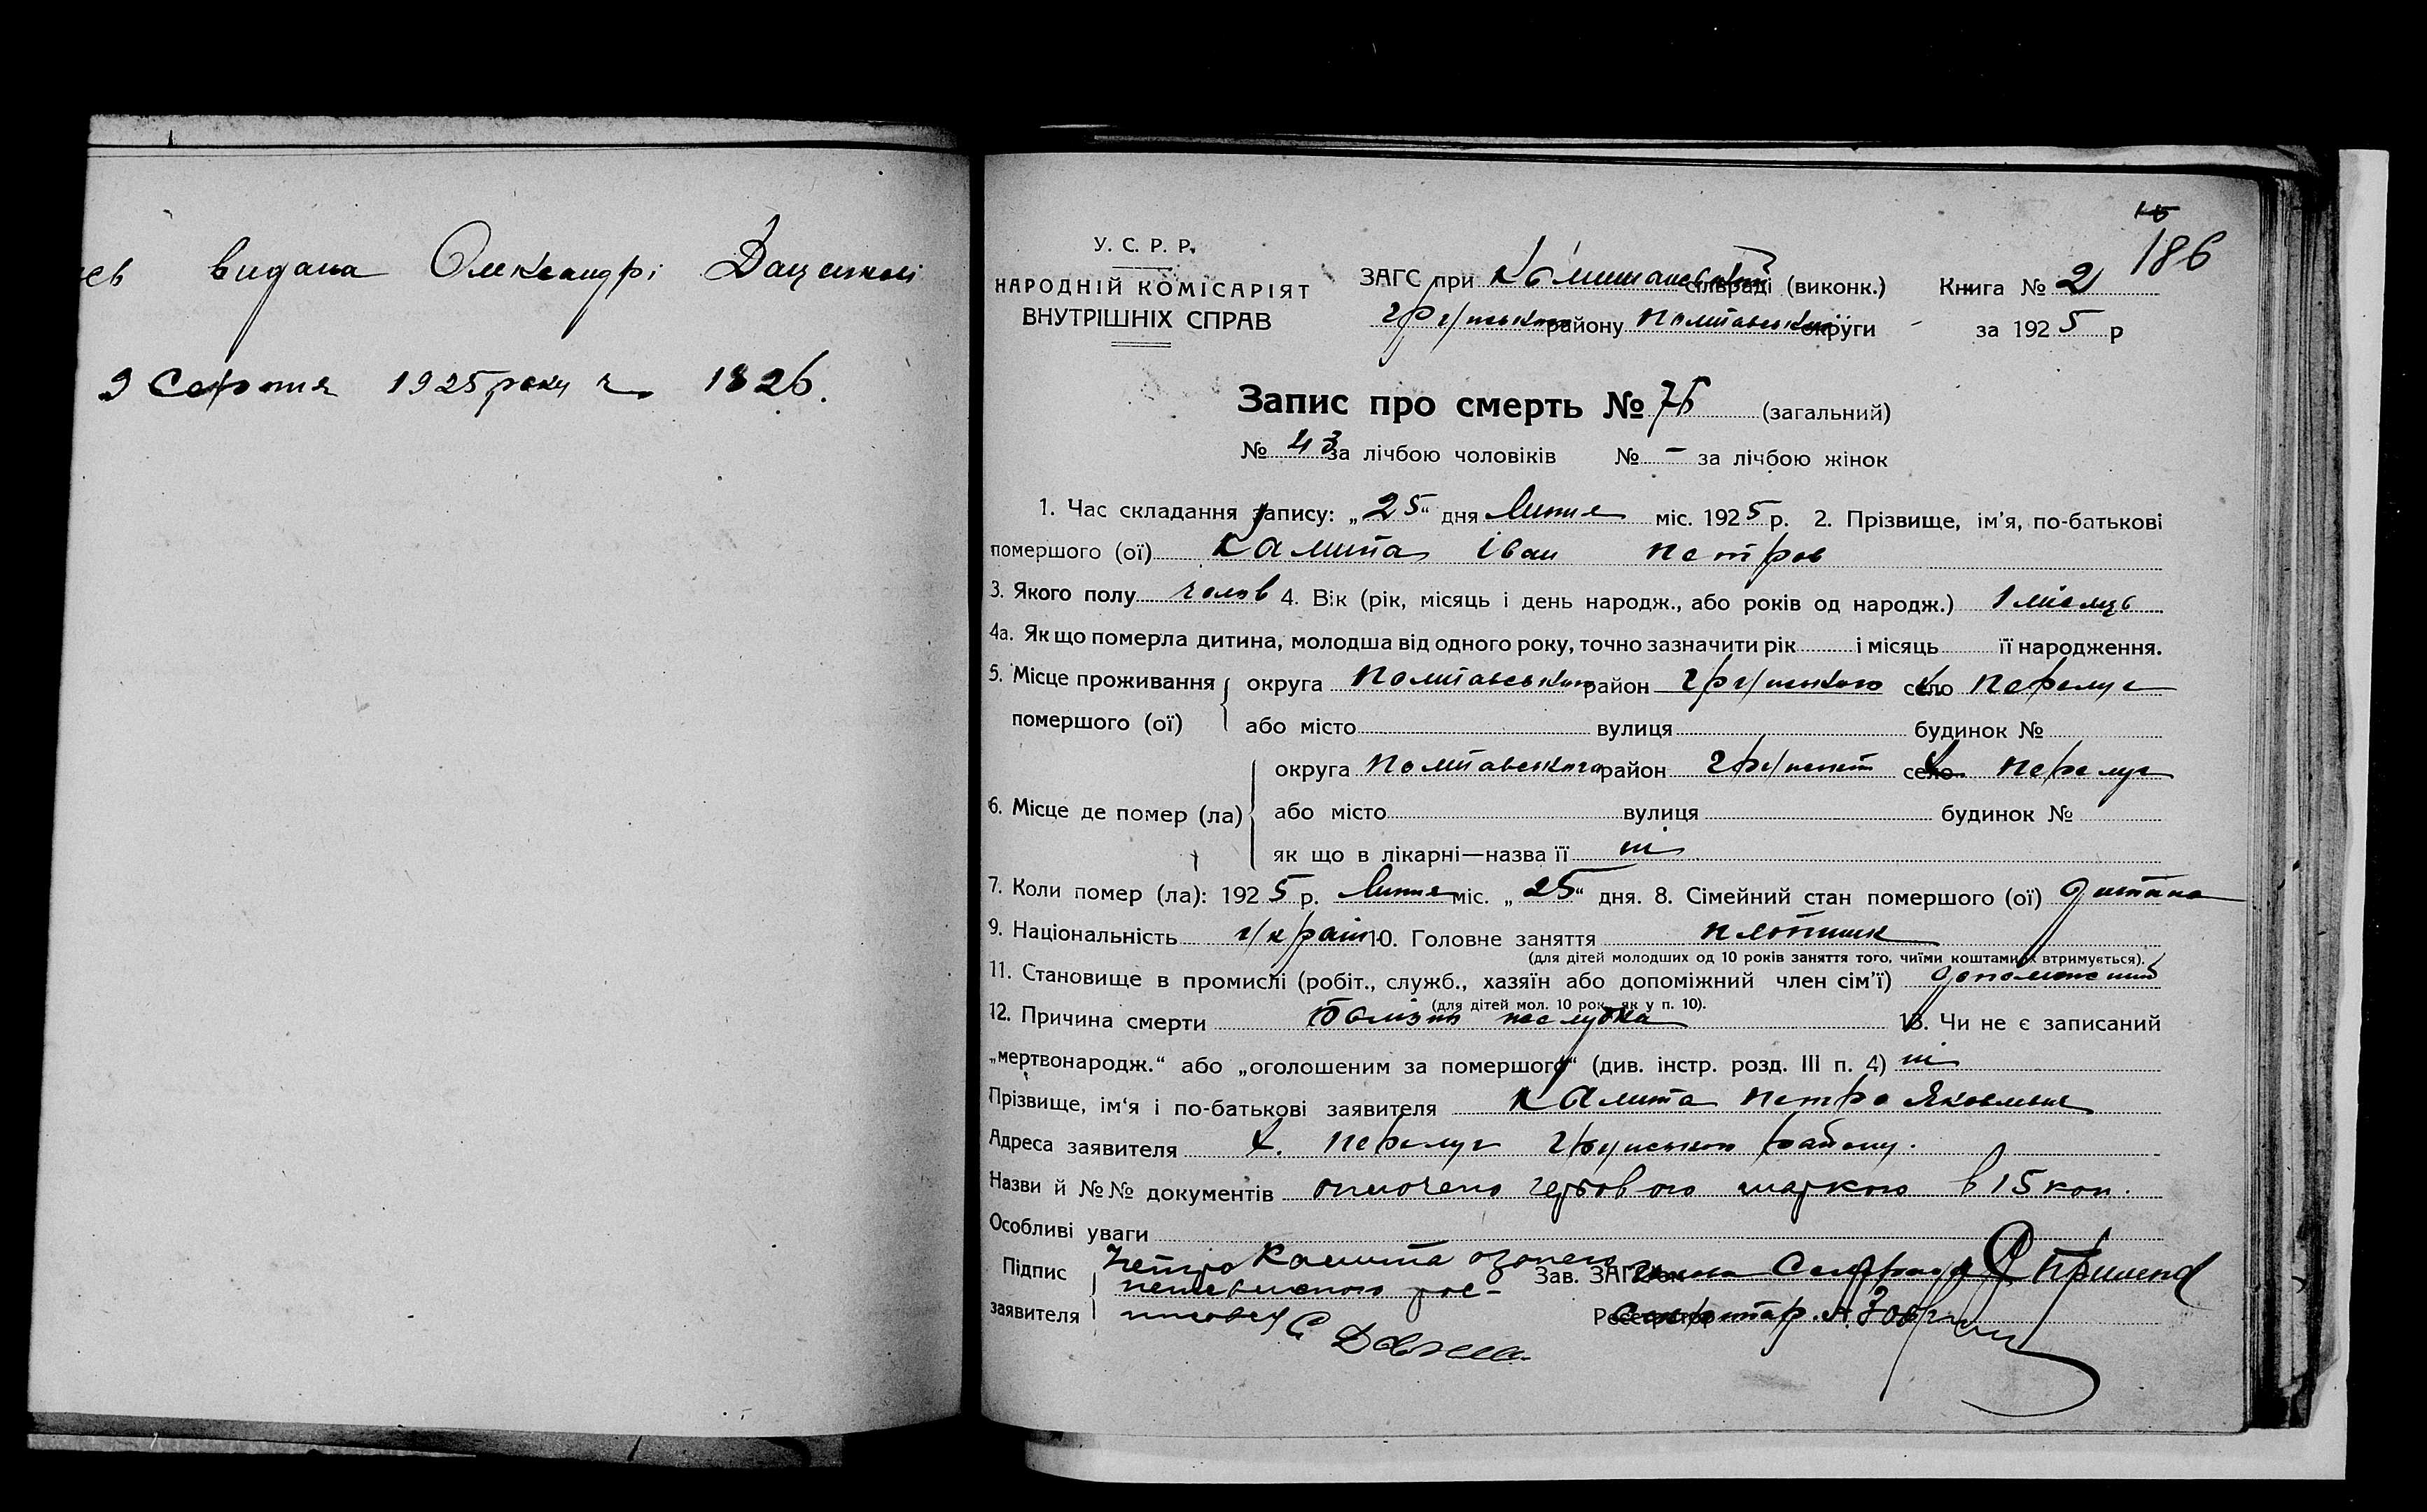 видана Олександрі Даценкові
9 Серпня 1925 року ч 1826.
15
186
У. С. Р. Р.
НАРОДНІЙ КОМІСАРІЯТ
ВНУТРІШНІХ СПРАВ
ЗАГС при сільраді (виконк.) Книга № 2
району Полтавської округи за 1925 р
Запис про смерть № 75 (загальний)
№ 43 за лічбою чоловіків № – за лічбою жінок
1. Час складання запису: „25“ дня Липня міс. 1925 р. 2. Прізвище, ім'я, по-батькові
помершого (ої) Калита Іван Петров
3. Якого полу чолов 4. Вік (рік, місяць і день народж., або років од народж.) 1 місяць
4а. Як що померла дитина, молодша від одного року, точно зазначити рік і місяць її народження.
5. Місце проживання округа Полтавського район Грунського село Перелуг
помершого (ої) або місто вулиця будинок №
округа Полтавського район Грунськ село Перелуг
6. Місце де помер (ла) або місто вулиця будинок №
як що в лікарні—назва її ні
7. Коли помер (ла): 1925 р. Липня міс. „25“ дня. 8. Сімейний стан помершого (ої) дитина
9. Національність україн 10. Головне заняття плотник
(для дітей молодших од 10 років заняття того, чиїми коштами їх втримується).
11. Становище в промислі (робіт., служб., хазяїн або допоміжний член сім'ї)
(для дітей мол. 10 рок. як у п. 10).
12. Причина смерти болізнь желудка 13. Чи не є записаний
„мертвонародж.“ або „оголошеним за помершого“ (див. інстр. розд. III п. 4) ні
Прізвище, ім'я і по-батькові заявителя Калита Петро Яковлевич
Адреса заявителя х. Перелуг Грунського району.
Назви й №№ документів оплочено гербовою маркою в 15 коп.
Особливі уваги
Підпис Петро Калита Зав. ЗАГС
заявителя Реєстратор Секретар